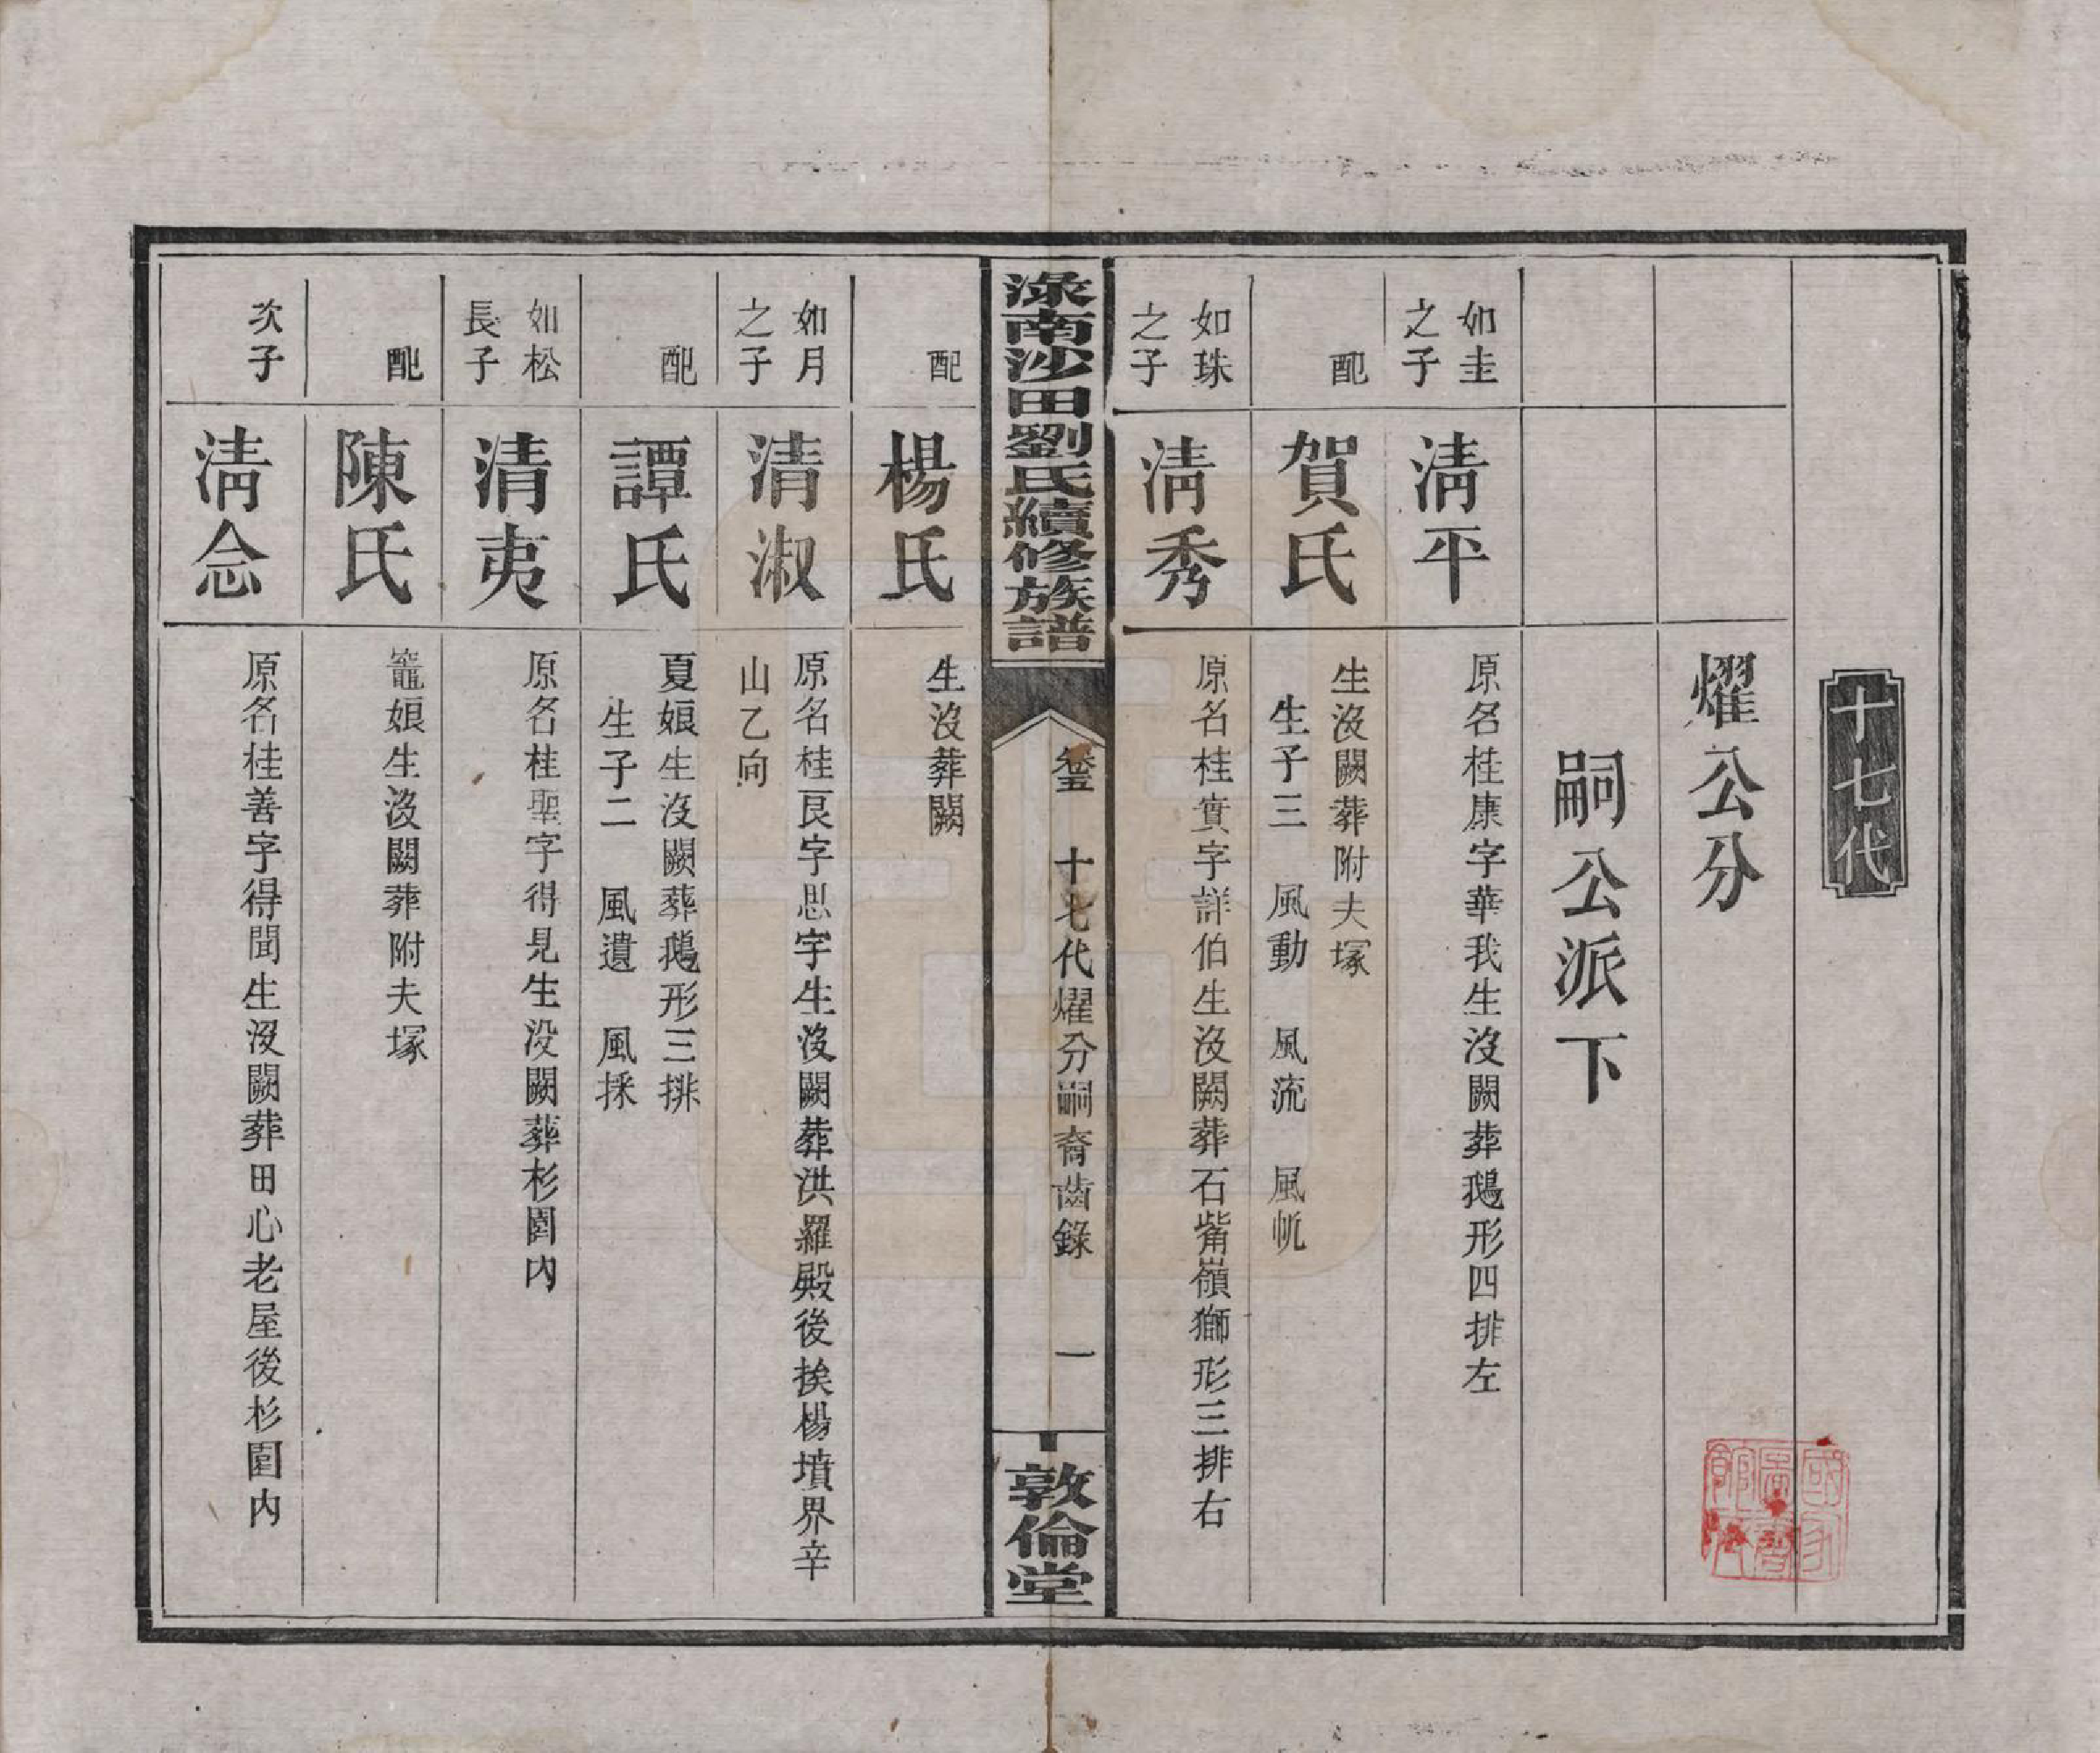 十七代
燿公分
嗣公派下
如圭
之子
清平
原名桂康字華我生沒闕葬鵝形四排左
配
賀氏
生沒闕葬附夫塚
生子三　風動　風流　風帆
如珠
之子
清秀
原名桂實字詳伯生沒闕葬石觜嶺獅形三排右
淥南沙田劉氏續修族譜
卷五　十七代燿分嗣裔齒錄　一
敦倫堂
配
楊氏
生沒葬闕
如月
之子
清淑
原名桂艮字思字生沒闕葬洪羅殿後挨楊墳界辛
山乙向
配
譚氏
夏娘生沒闕葬鵝形三排
生子二　風遺　風採
如松
長子
清夷
原名桂聖字得見生沒闕葬杉園內
配
陳氏
竈娘生沒闕葬附夫塚
次子
清念
原名桂善字得聞生沒闕葬田心老屋後杉園內